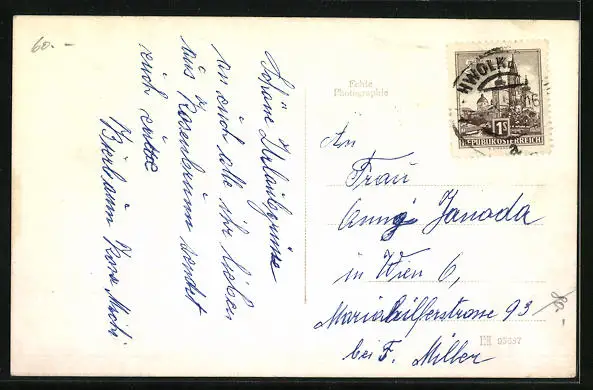 60.-
Schöne Urlaubsgrüsse
an euch alle ihr lieben
aus Rosenbrunn sendet
euch
Echte
Photographie
HWOLK
1S
REPUBLIK ÖSTERREICH
a
An
Frau
Anny Janada
in Wien 6,
Mariahilferstrasse 93
bei F. Miller
80.-
95687